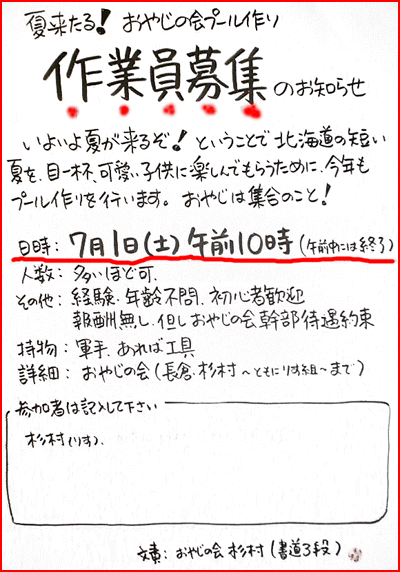 夏来たる! おやじの会プール作り
作業員募集のお知らせ
いよいよ夏が来るぞ! ということで 北海道の短い
夏を、目一杯、可愛い子供に楽しんでもらうために、今年も
プール作りを行います。おやじは集合のこと!
日時: 7月1日(土) 午前10時(午前中には終了)
人数: 多いほど可.
その他: 経験・年齢不問. 初心者歓迎
報酬無し. 但しおやじの会幹部待遇約束
持物: 軍手. あれば工具
詳細: おやじの会(長倉・杉村 〜ともにりす組〜まで)
参加者は記入して下さい
杉村(りす).
文責: おやじの会 杉村(書道3段)